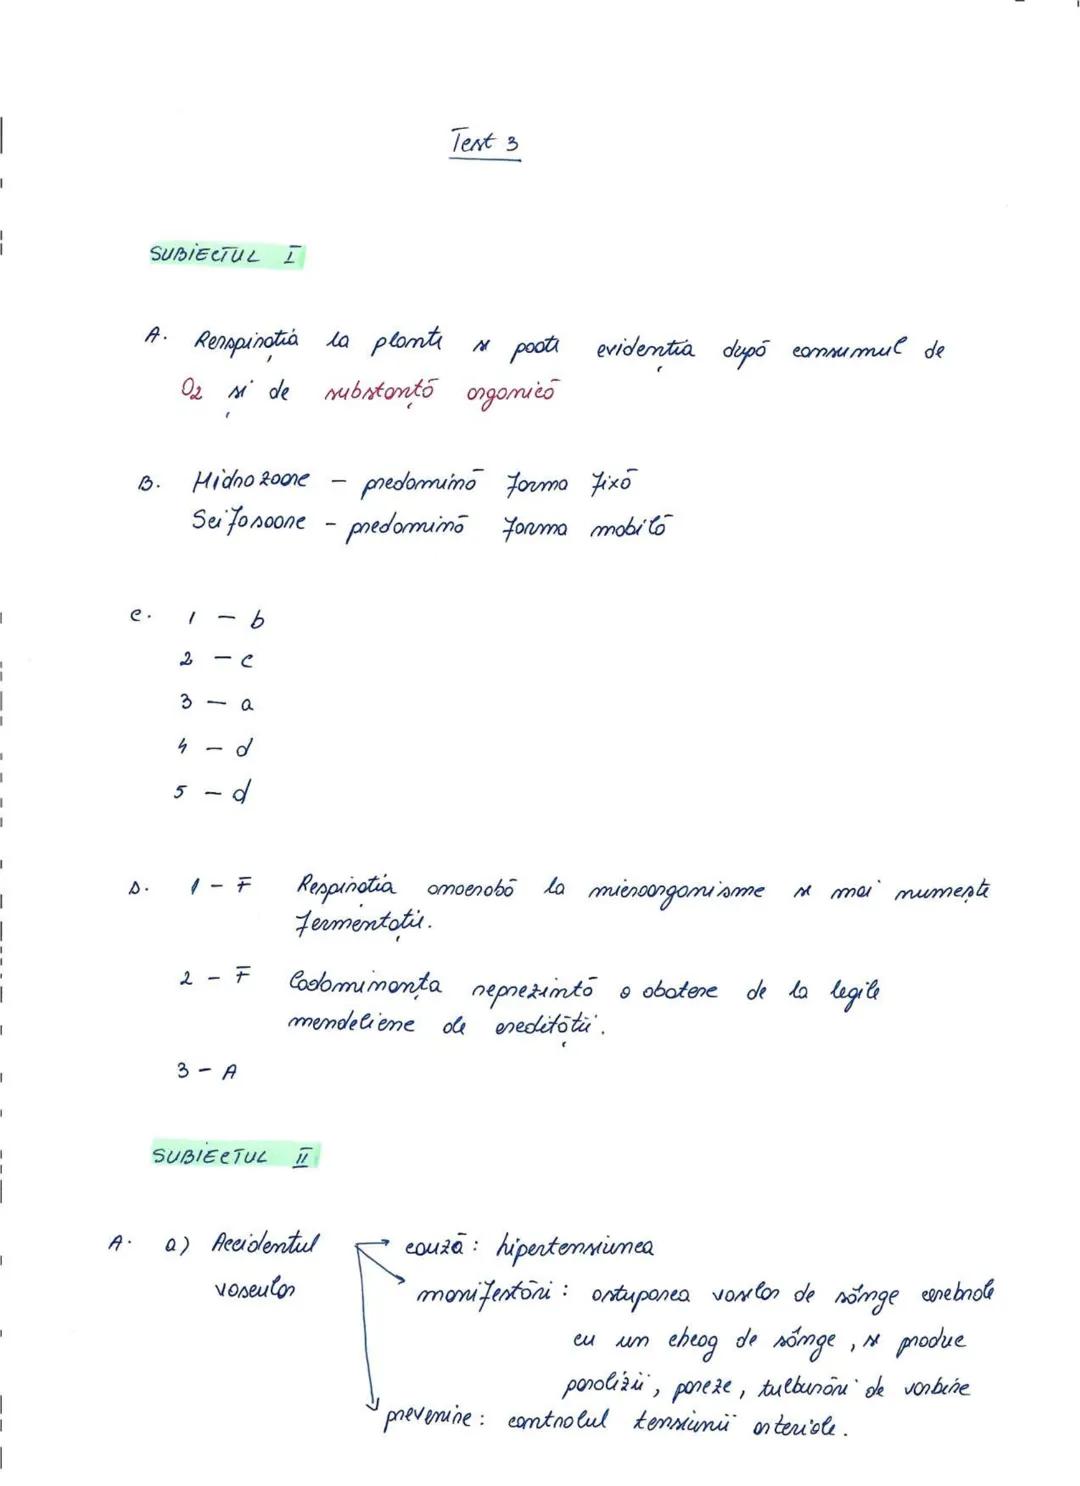 Test 3
SUBIECTUL I
A. Respirația la plante se poate evidenția după consumul de
O2 și de substanță organică
B. Hidrozoare - predomină forma fixă
Scifozoare - predomină forma mobilă
C. 1 - b
2 - c
3 - a
4 - d
5 - d
D. 1 - F Respirația anaerobă la microorganisme se mai numește
fermentație.
2 - F Codominanța reprezintă o abatere de la legile
mendeliene ale eredității.
3 - A
SUBIECTUL II
A. a) Accidentul → cauză: hipertensiunea
vascular manifestări: astuparea vaselor de sânge cerebrale
cu un cheag de sânge, se produc
paralizii, pareze, tulburări de vorbire
prevenire: controlul tensiunii arteriale.